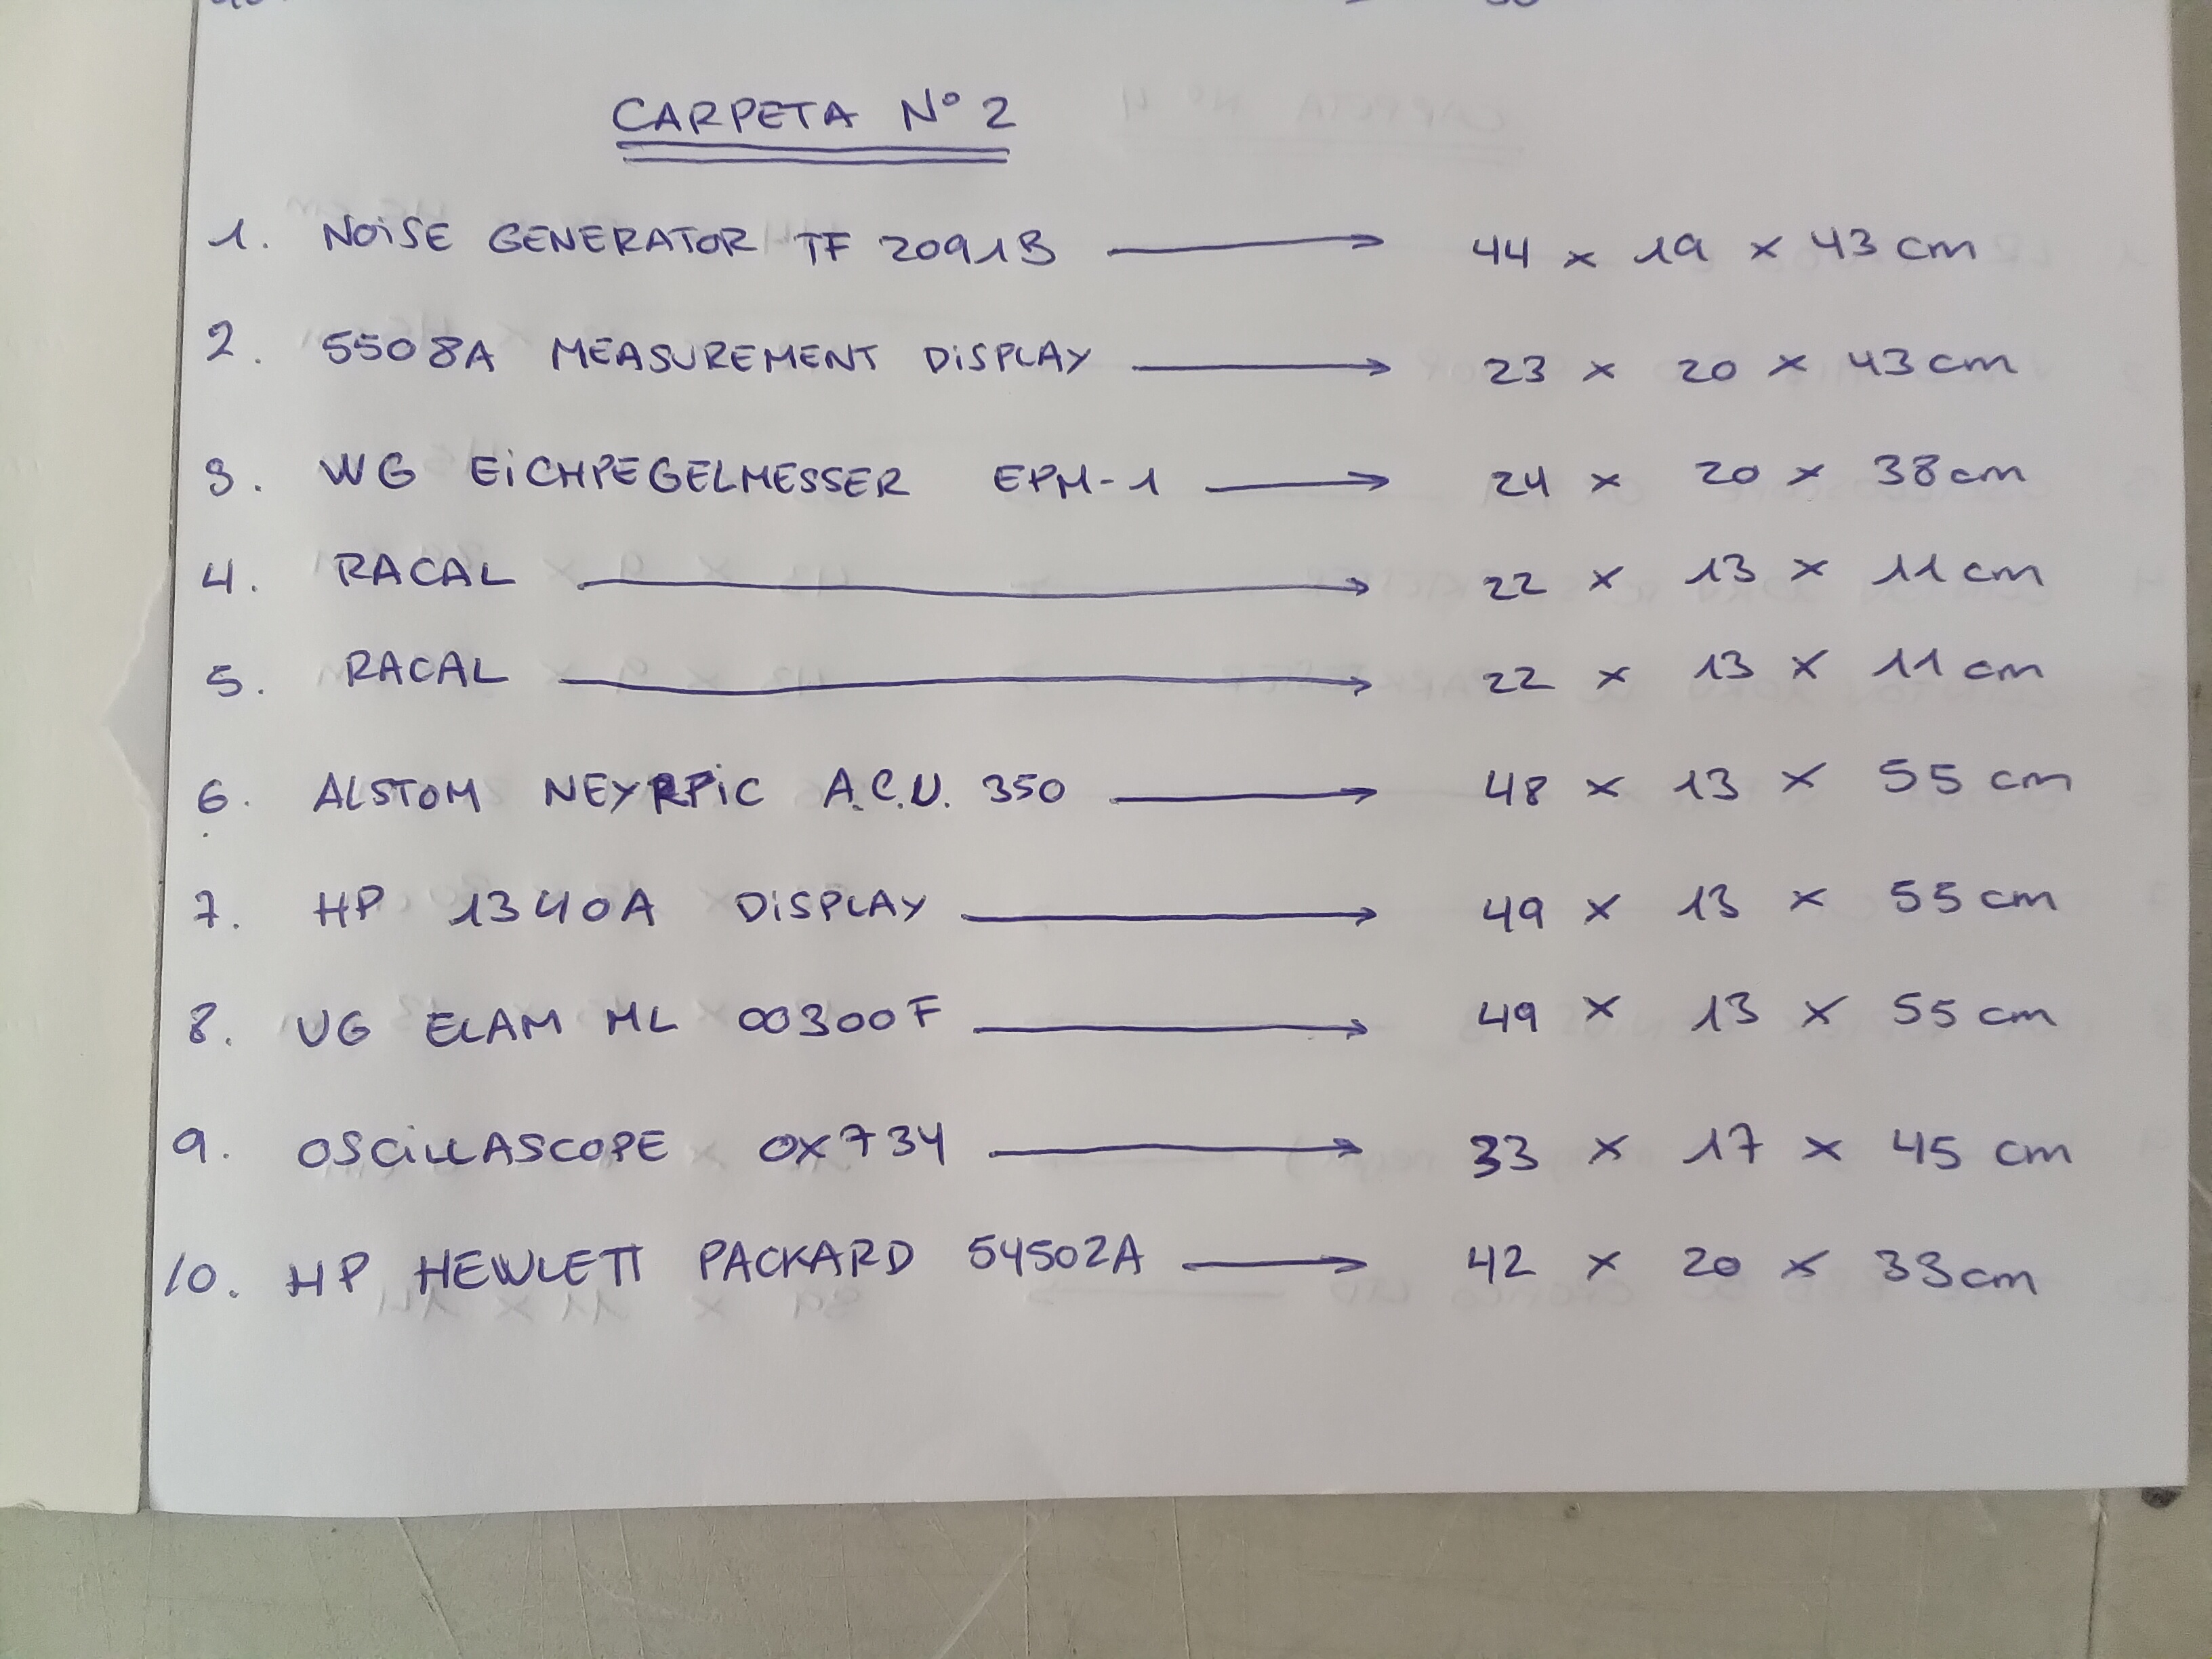 CARPETA Nº 2
1. NOISE GENERATOR TF 2091B → 44 x 19 x 43 cm
2. 5508A MEASUREMENT DISPLAY → 23 x 20 x 43 cm
3. WG EICHPEGELMESSER EPM-1 → 24 x 20 x 38 cm
4. RACAL → 22 x 13 x 11 cm
5. RACAL → 22 x 13 x 11 cm
6. ALSTOM NEYRPIC A.C.U. 350 → 48 x 13 x 55 cm
7. HP 1340A DISPLAY → 49 x 13 x 55 cm
8. UG ELAM ML 00300F → 49 x 13 x 55 cm
9. OSCILLASCOPE OX734 → 33 x 17 x 45 cm
10. HP HEWLETT PACKARD 54502A → 42 x 20 x 33 cm